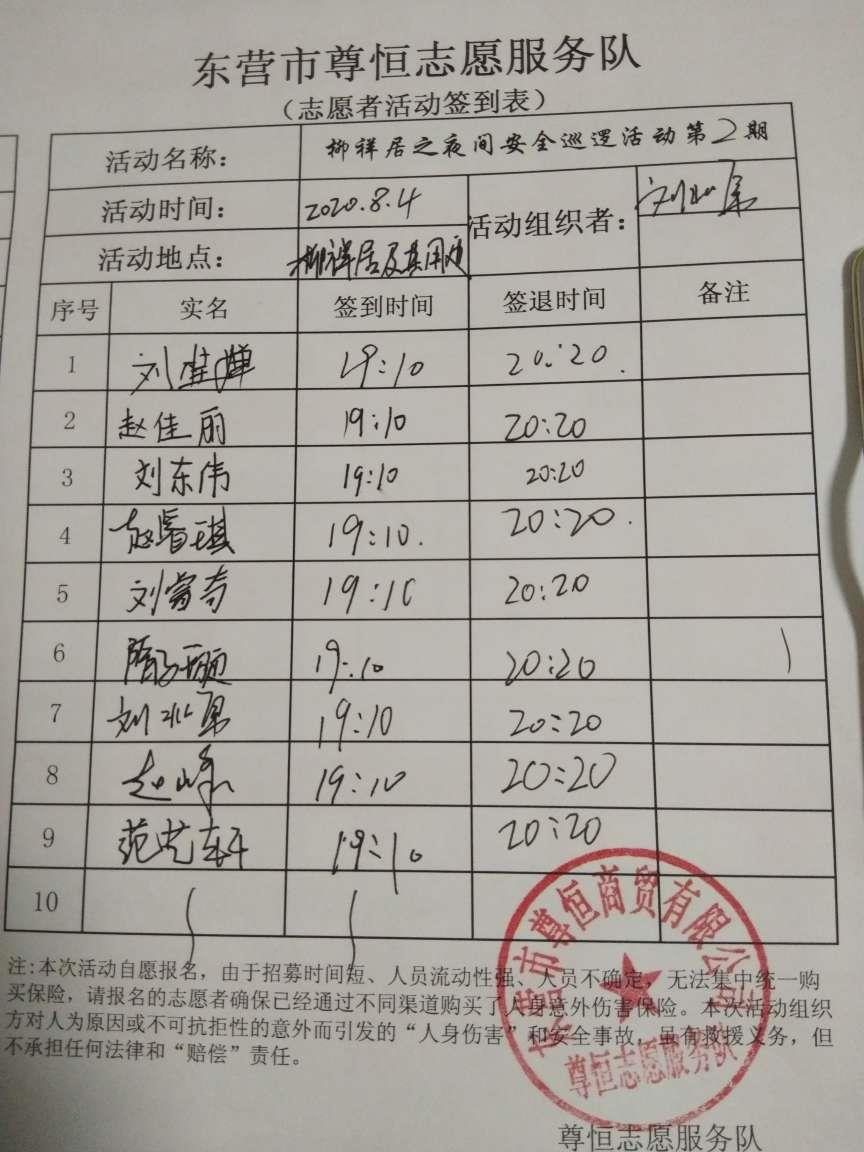 东营市尊恒志愿服务队
（志愿者活动签到表）
活动名称： 柳祥居之夜间安全巡逻活动第2期
活动时间： 2020.8.4 活动组织者：
活动地点： 柳祥居及其周边
序号 实名 签到时间 签退时间 备注
1 刘 19:10 20:20.
2 赵佳丽 19:10 20:20
3 刘东伟 19:10 20:20
4 赵睿琪 19:10. 20:20.
5 刘 19:10 20:20
6 19:10 20:20
7 刘 19:10 20:20
8 赵峰 19:10 20:20
9 范艺轩 19:10 20:20
10
注:本次活动自愿报名，由于招募时间短、人员流动性强、人员不确定，无法集中统一购
买保险，请报名的志愿者确保已经通过不同渠道购买了人身意外伤害保险。本次活动组织
方对人为原因或不可抗拒性的意外而引发的“人身伤害”和安全事故，虽有救援义务，但
不承担任何法律和“赔偿”责任。
东营市尊恒商贸有限公司
尊恒志愿服务队
尊恒志愿服务队